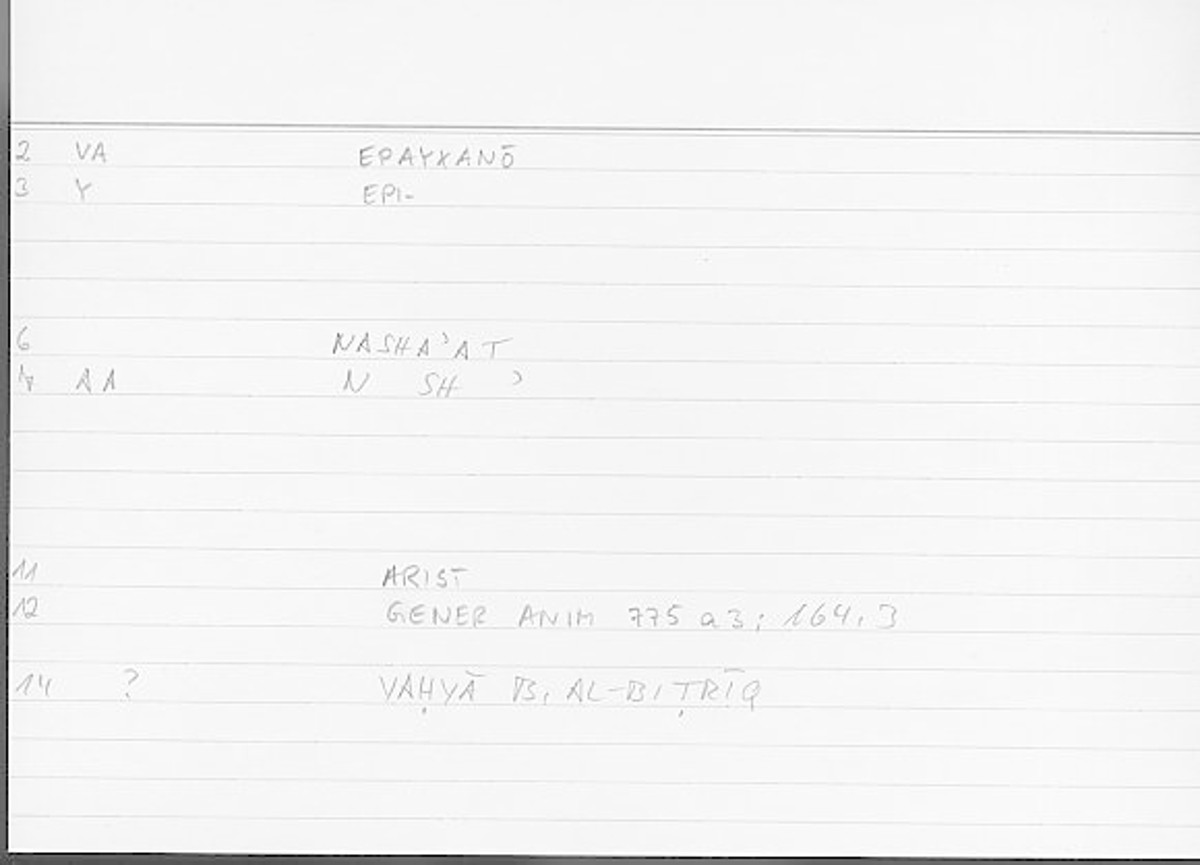 2 VA EPAYXANŌ
3 Y EPI-
6 NASHAʾAT
7 AA N SH ʾ
11 ARIST
12 GENER ANIM 775 a3; 164,3
14 ? YAḤYĀ B. AL-BIṬRĪQ